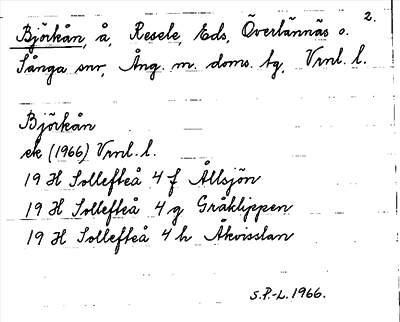 2.
Björkån, å, Resele, Eds, Överlännäs o.
Sånga snr, Ång. m. doms. tg, Vrnl. l.
Björkån
ek (1966) Vrnl. l.
19 H Sollefteå 4 f Ållsjön
19 H Sollefteå 4 g Gråklippen
19 H Sollefteå 4 h Åkvisslan
S.P.-L. 1966.